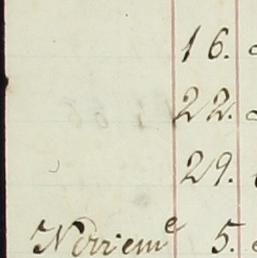 16.
22.
29.
Noviem^e 5.